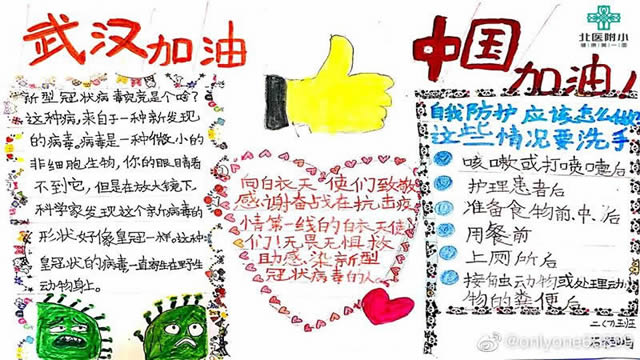 武汉加油
中国
加油!
北医附小
新型冠状病毒究竟是个啥?
这种病,来自于一种新发现
的病毒。病毒是一种微小的
非细胞生物,你的眼睛看
不到它,但是在放大镜下,
科学家发现这个新病毒的
形状好像皇冠一样。这种
皇冠状的病毒一直寄生在野生
动物身上。
向白衣天使们致敬
感谢奋战在抗击疫
情第一线的白衣天使
们!无畏无惧,救
助感染新型
冠状病毒的人。
自我防护应该怎么做
这些情况要洗手
咳嗽或打喷嚏后
护理患者后
准备食物前.中.后
用餐前
上厕所后
接触动物或处理动
物的粪便后